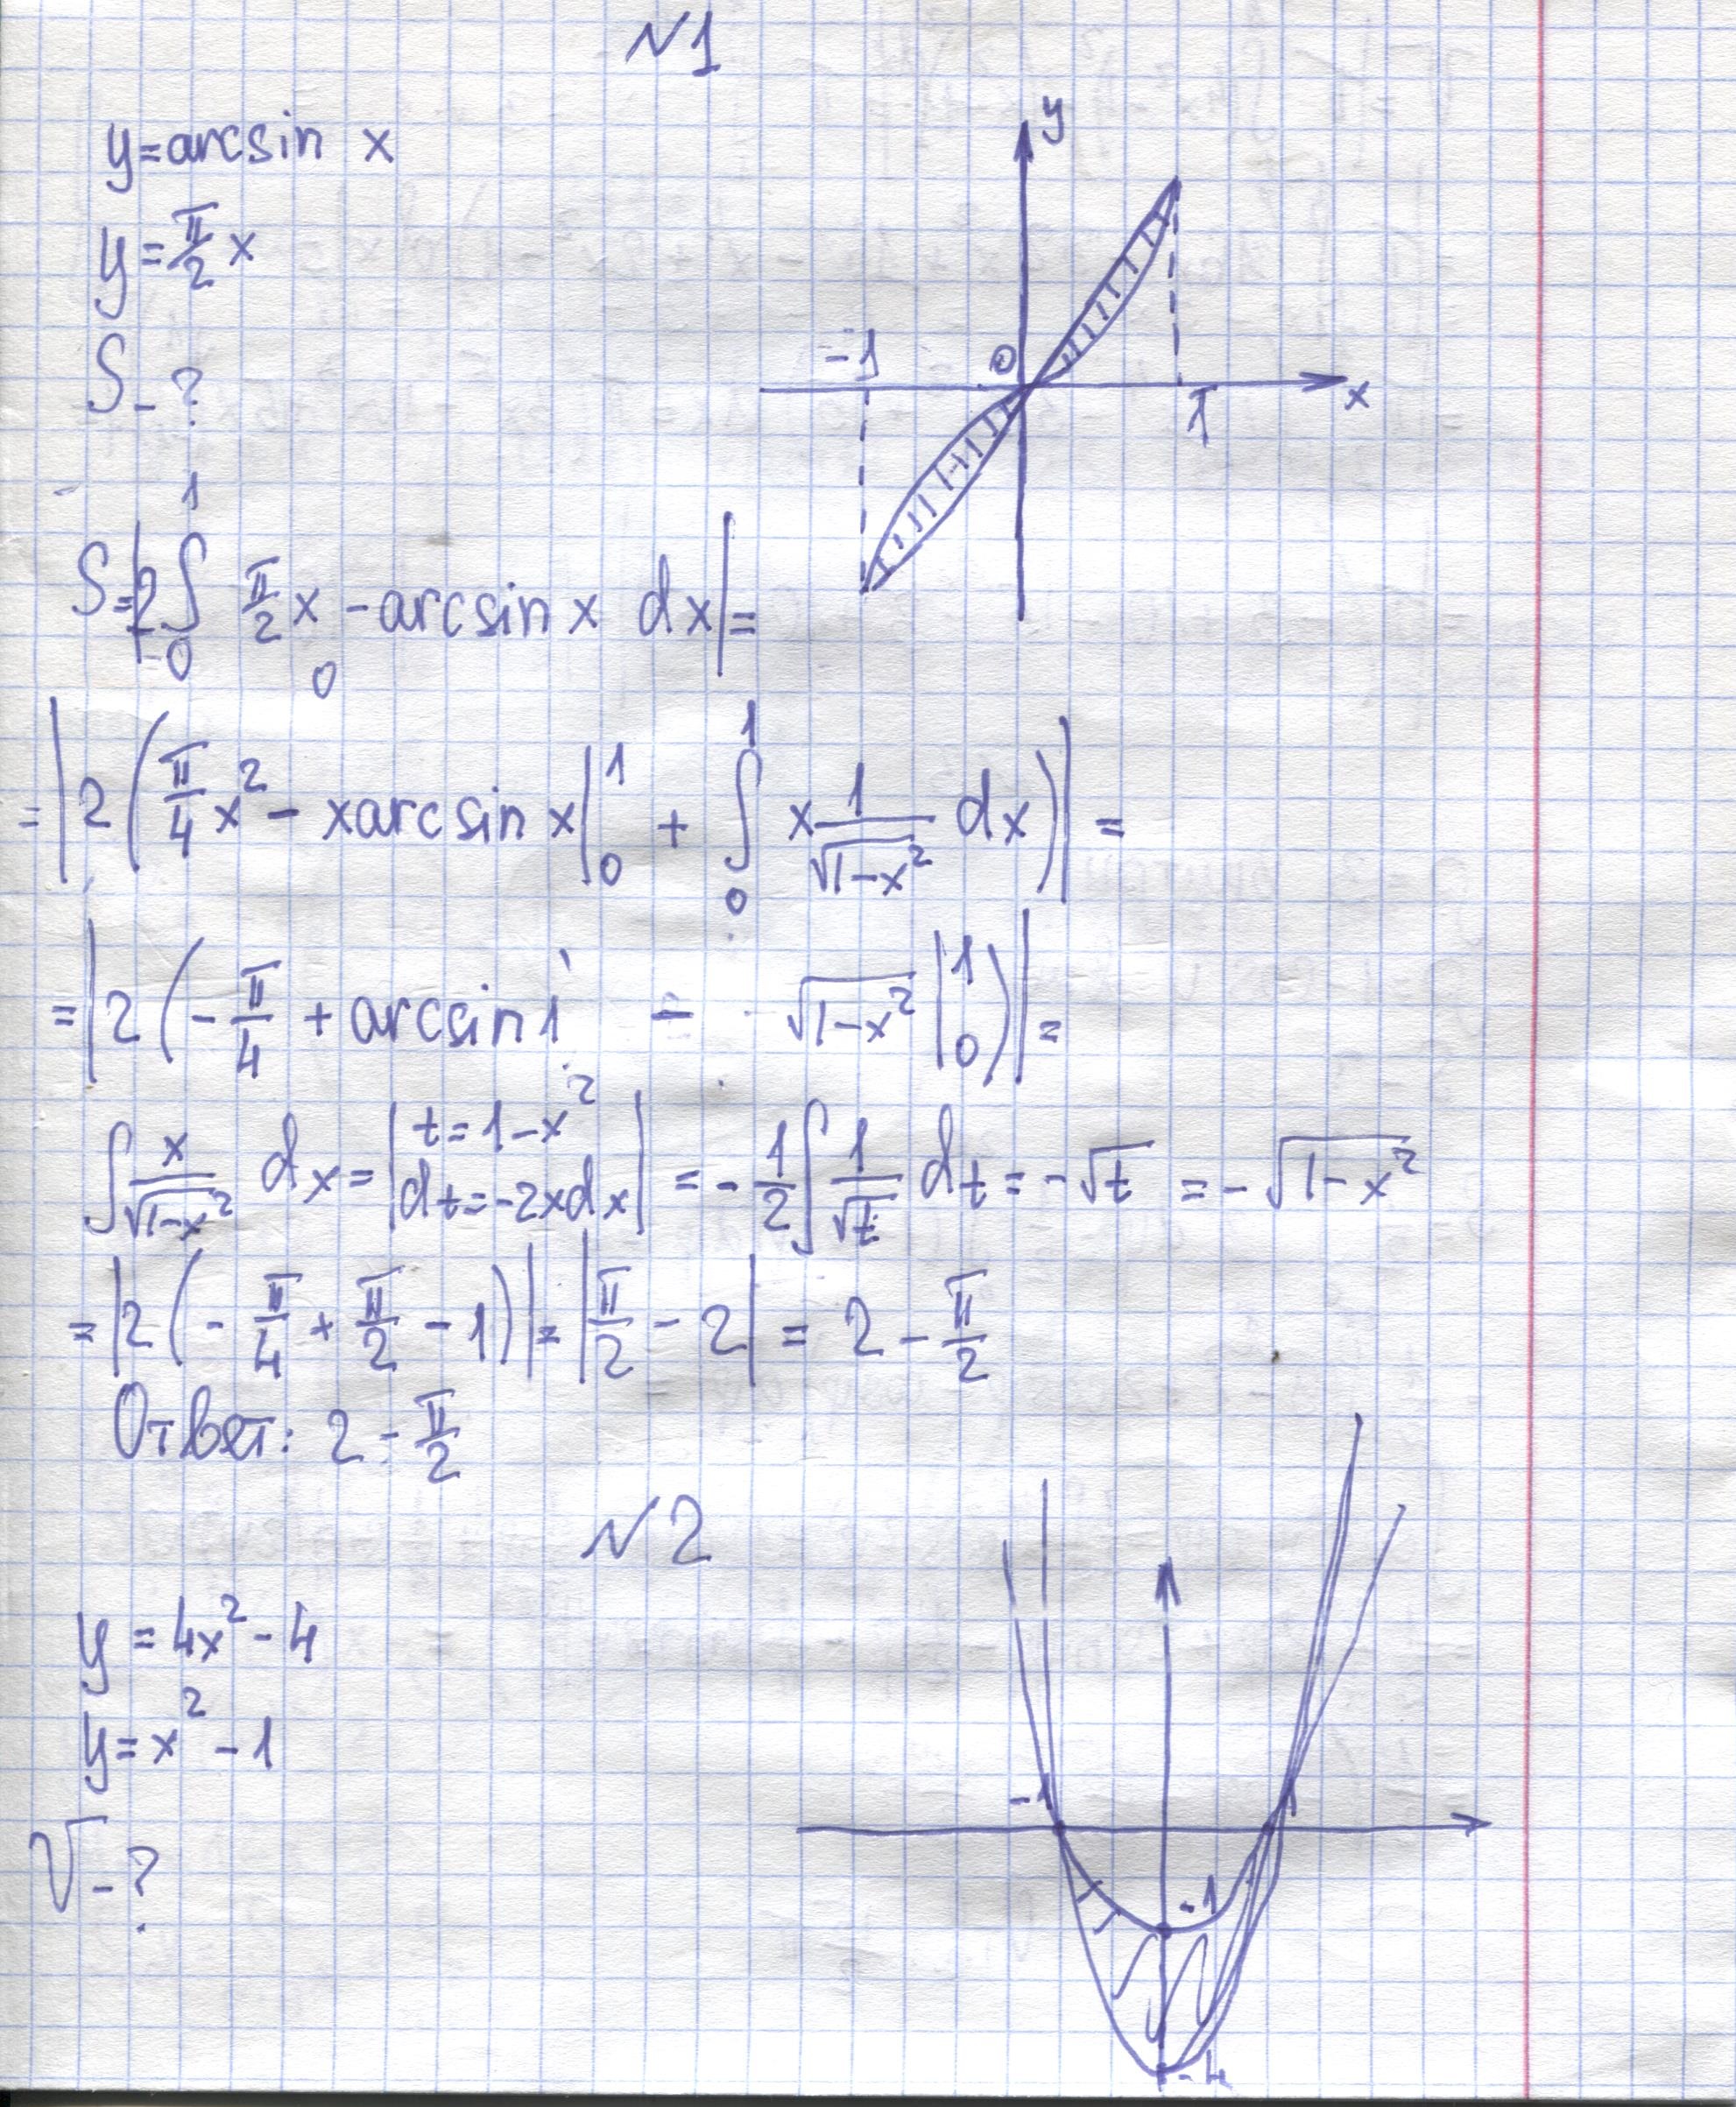 N1
y = arcsin x
y = π/2 x
S - ?
y
-1 0 1 x
S = |2 ∫₀¹ π/2 x - arcsin x dx| =
0
= |2 (π/4 x² - x arcsin x |₀¹ + ∫₀¹ x 1/√(1-x²) dx)| =
= |2 (- π/4 + arcsin 1 - √(1-x²) |₀¹)| =
∫ x/√(1-x²) dx = | t = 1-x² dt = -2xdx | = - 1/2 ∫ 1/√t dt = -√t = -√(1-x²)
= |2 (- π/4 + π/2 - 1)| = |π/2 - 2| = 2 - π/2
Ответ: 2 - π/2
N2
y = 4x² - 4
y = x² - 1
V - ?
-1 1
-1
-4